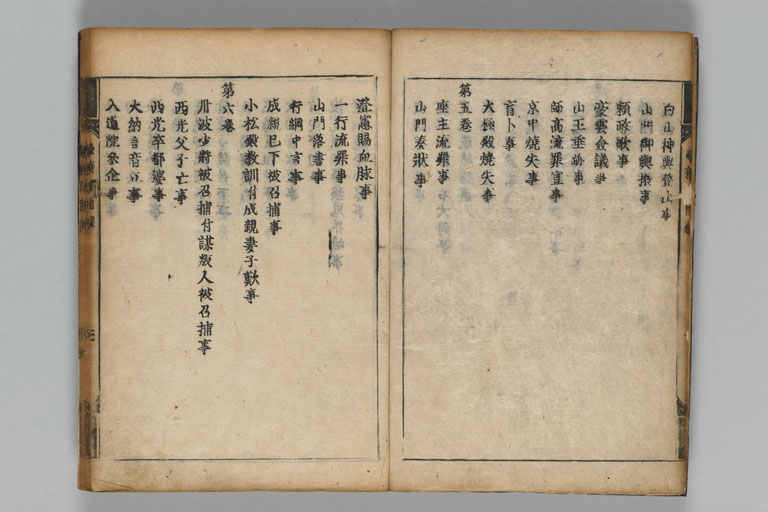 白山神輿登山事
山門御輿振事
頼政歌事
豪雲僉議事
山王垂跡事
師高流罪宣事
京中焼失事
盲卜事
大極殿焼失事
第五巻
座主流罪事
山門奏状事
澄憲賜血脉事
一行流罪事
山門落書事
行綱中言事
成親已下被召捕事
小松殿教訓付成親妻子歎事
第六巻
丹波少将被召捕付謀叛人被召捕事
西光父子亡事
西光卒都婆事
大納言音立事
入道院参企事